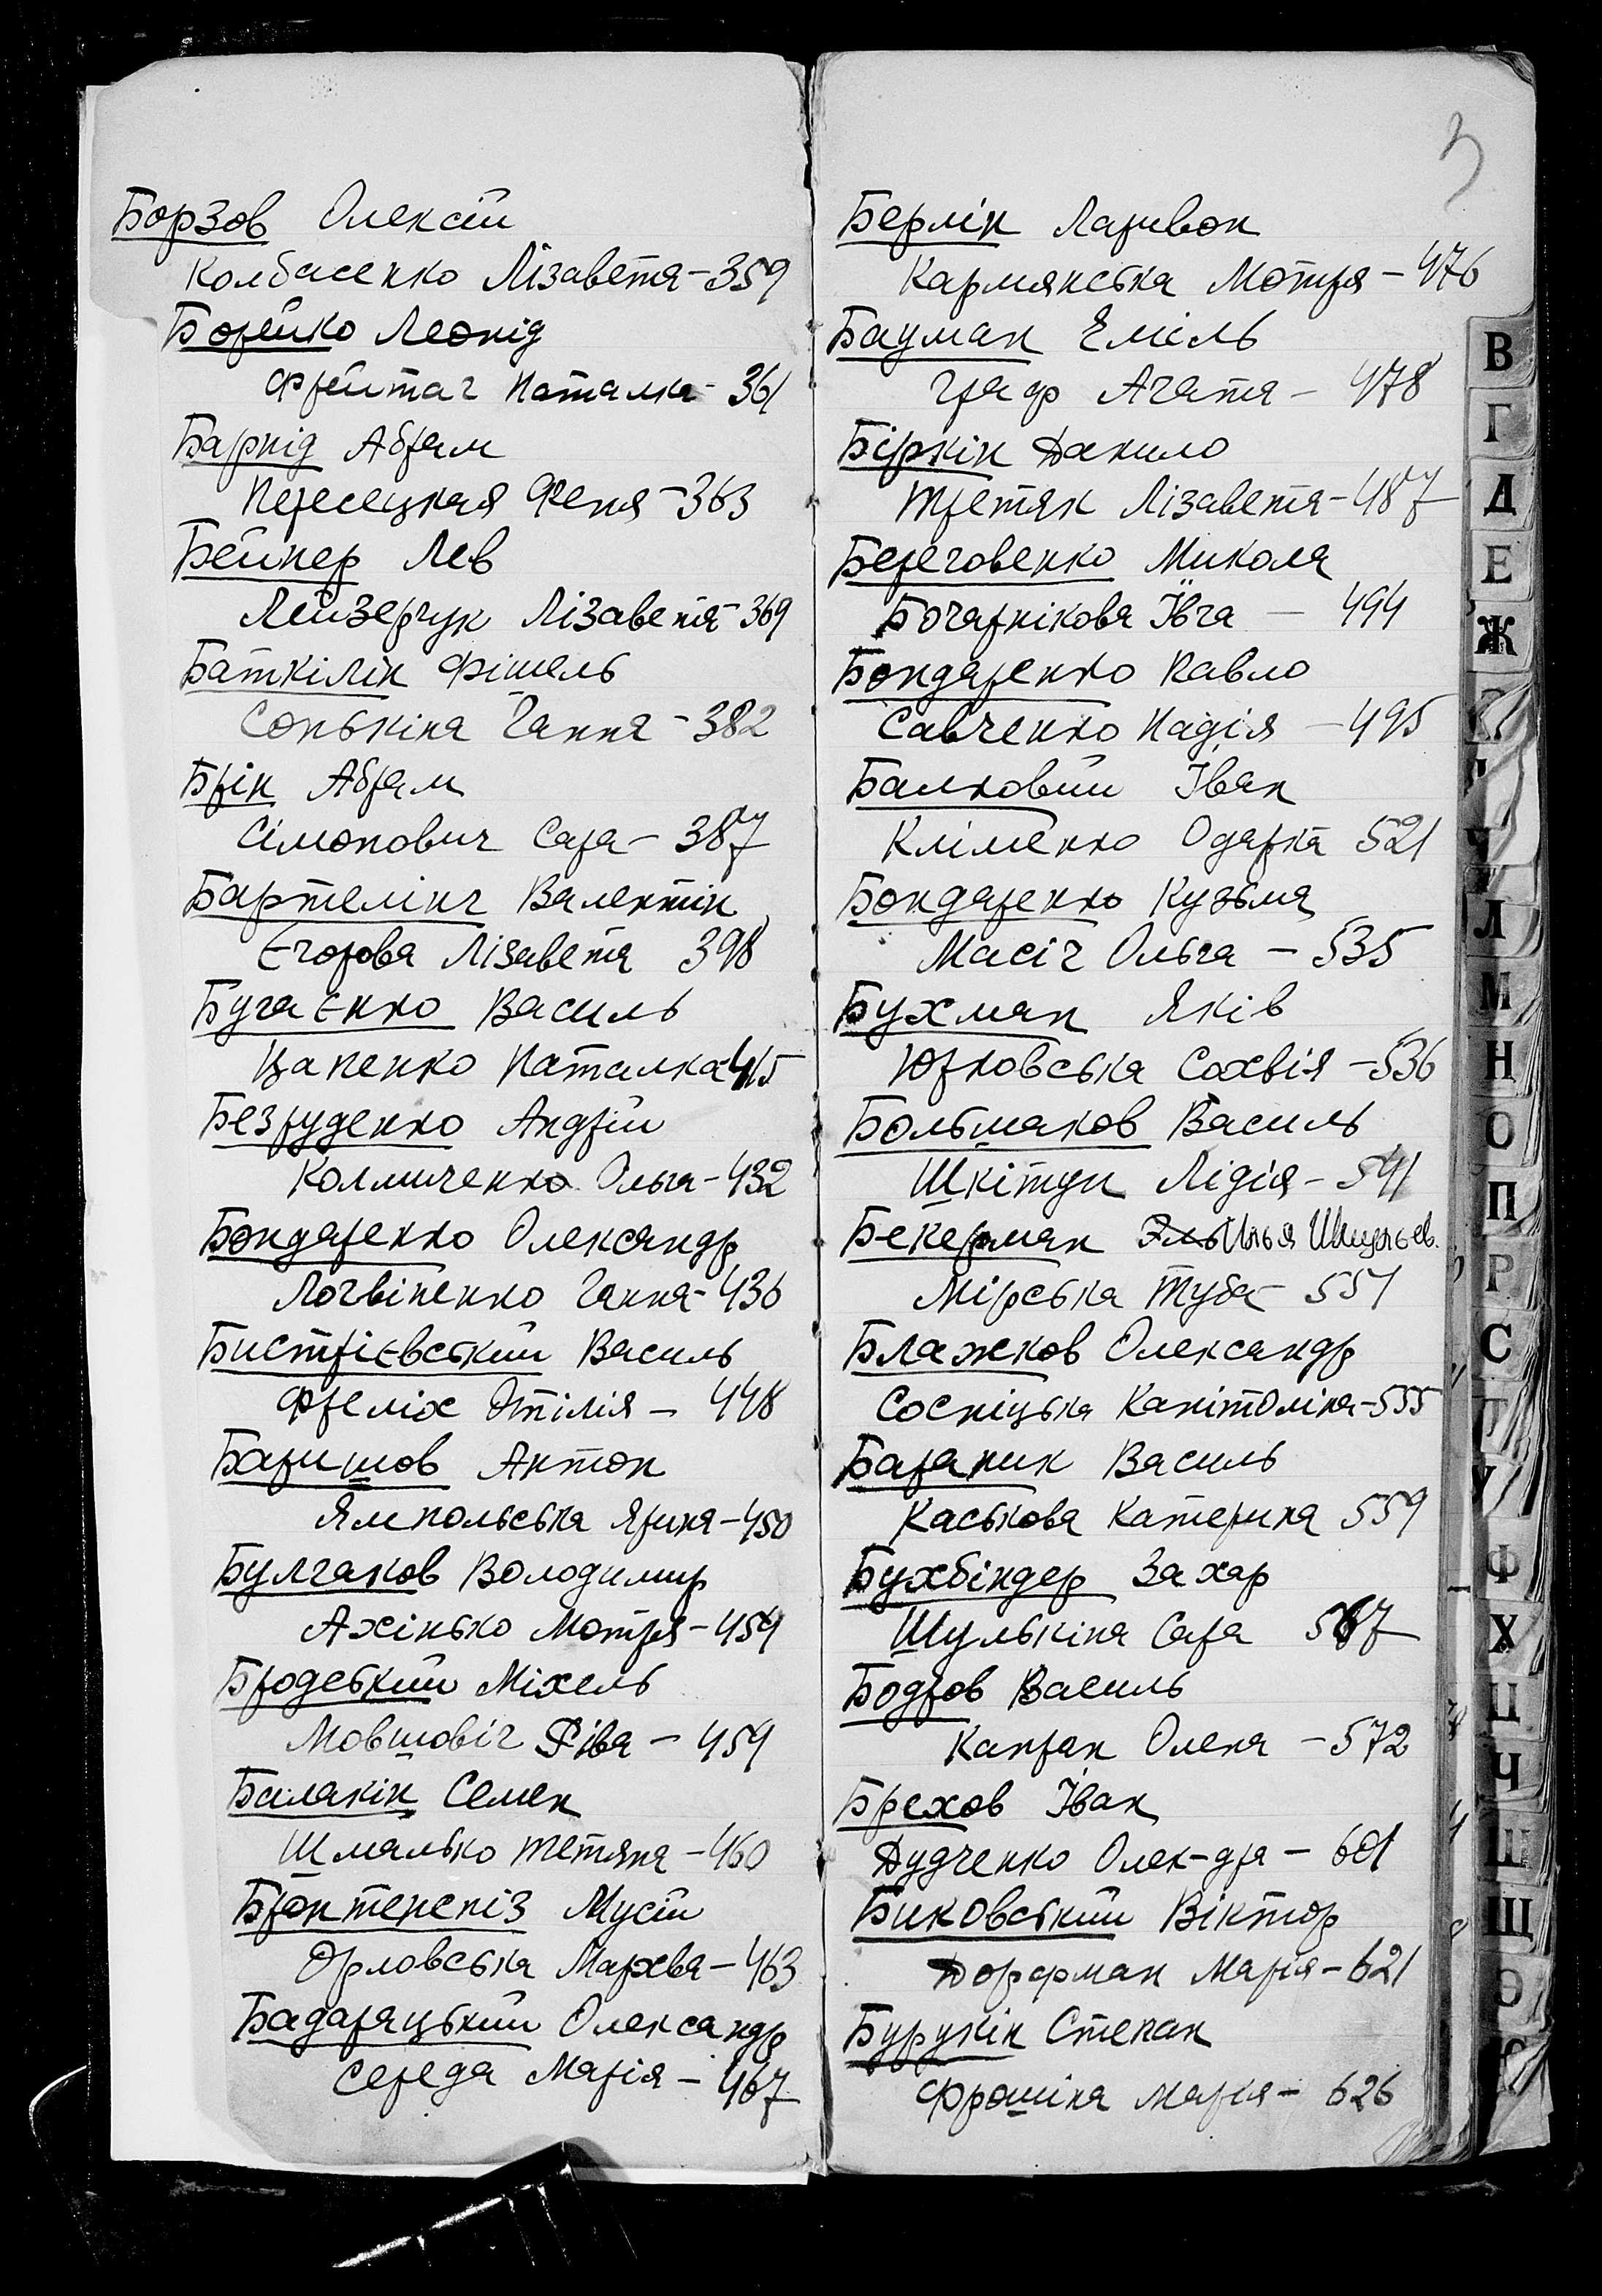 Борзов Олексій
Колбасенко Лізавета - 359
Борейко Леонід
Фрейтаг Наталка - 361
Барнід Абрам
Пересецкая Феня - 363
Бейнер Лев
Лейзерчук Лізавета - 369
Баткілін Фішель
Сонькіна Ганна - 382
Брін Абрам
Сімонович Сара - 387
Бартелінг Валентін
Єгорова Лізавета 398
Бугаєнко Василь
Цапенко Наталка - 415
Безруденко Андрій
Колмиченко Ольга - 432
Бондаренко Олександр
Логвіненко Ганна - 436
Бистрієвський Василь
Фреліх Отілія - 448
Баришов Антон
Ямпольська Ярина - 450
Булгаков Володимир
Ахінько Мотря - 454
Бродський Міхель
Мовшовіч Ріва - 459
Балакін Семен
Шмалько Тетяна - 460
Бронтерепіз Мусій
Орловська Мархва - 463
Бадаряцький Олександр
Середа Марія - 467
3
Берлін Ларивон
Кармянська Мотря - 476
Бауман Еміль
Граф Агата - 478
Біркін Данило
Третяк Лізавета - 487
Береговенко Микола
Бочарнікова Ївга - 494
Бондаренко Павло
Савченко Надія - 495
Балковий Іван
Кліменко Одарка 521
Бондаренко Кузьма
Масіч Ольга - 535
Бухман Яків
Юрковська Сохвія - 536
Большаков Василь
Шкітун Лідія - 541
Бекерман Илья
Мірська Туба - 551
Блажков Олександр
Сосніцька Капітоліна - 555
Бараник Василь
Каськова Катерина 559
Бухбіндер Захар
Шулькіна Сара 567
Бодров Василь
Капран Олена - 572
Брехов Іван
Дудченко Олек-дра - 601
Биковський Віктор
Дорфман Марія - 621
Бурукін Степан
Фрошіна Марія - 626
В
Г
Д
Е
Ж
Л
М
Н
О
П
Р
С
Т
У
Ф
Х
Ц
Ч
Ш
Щ